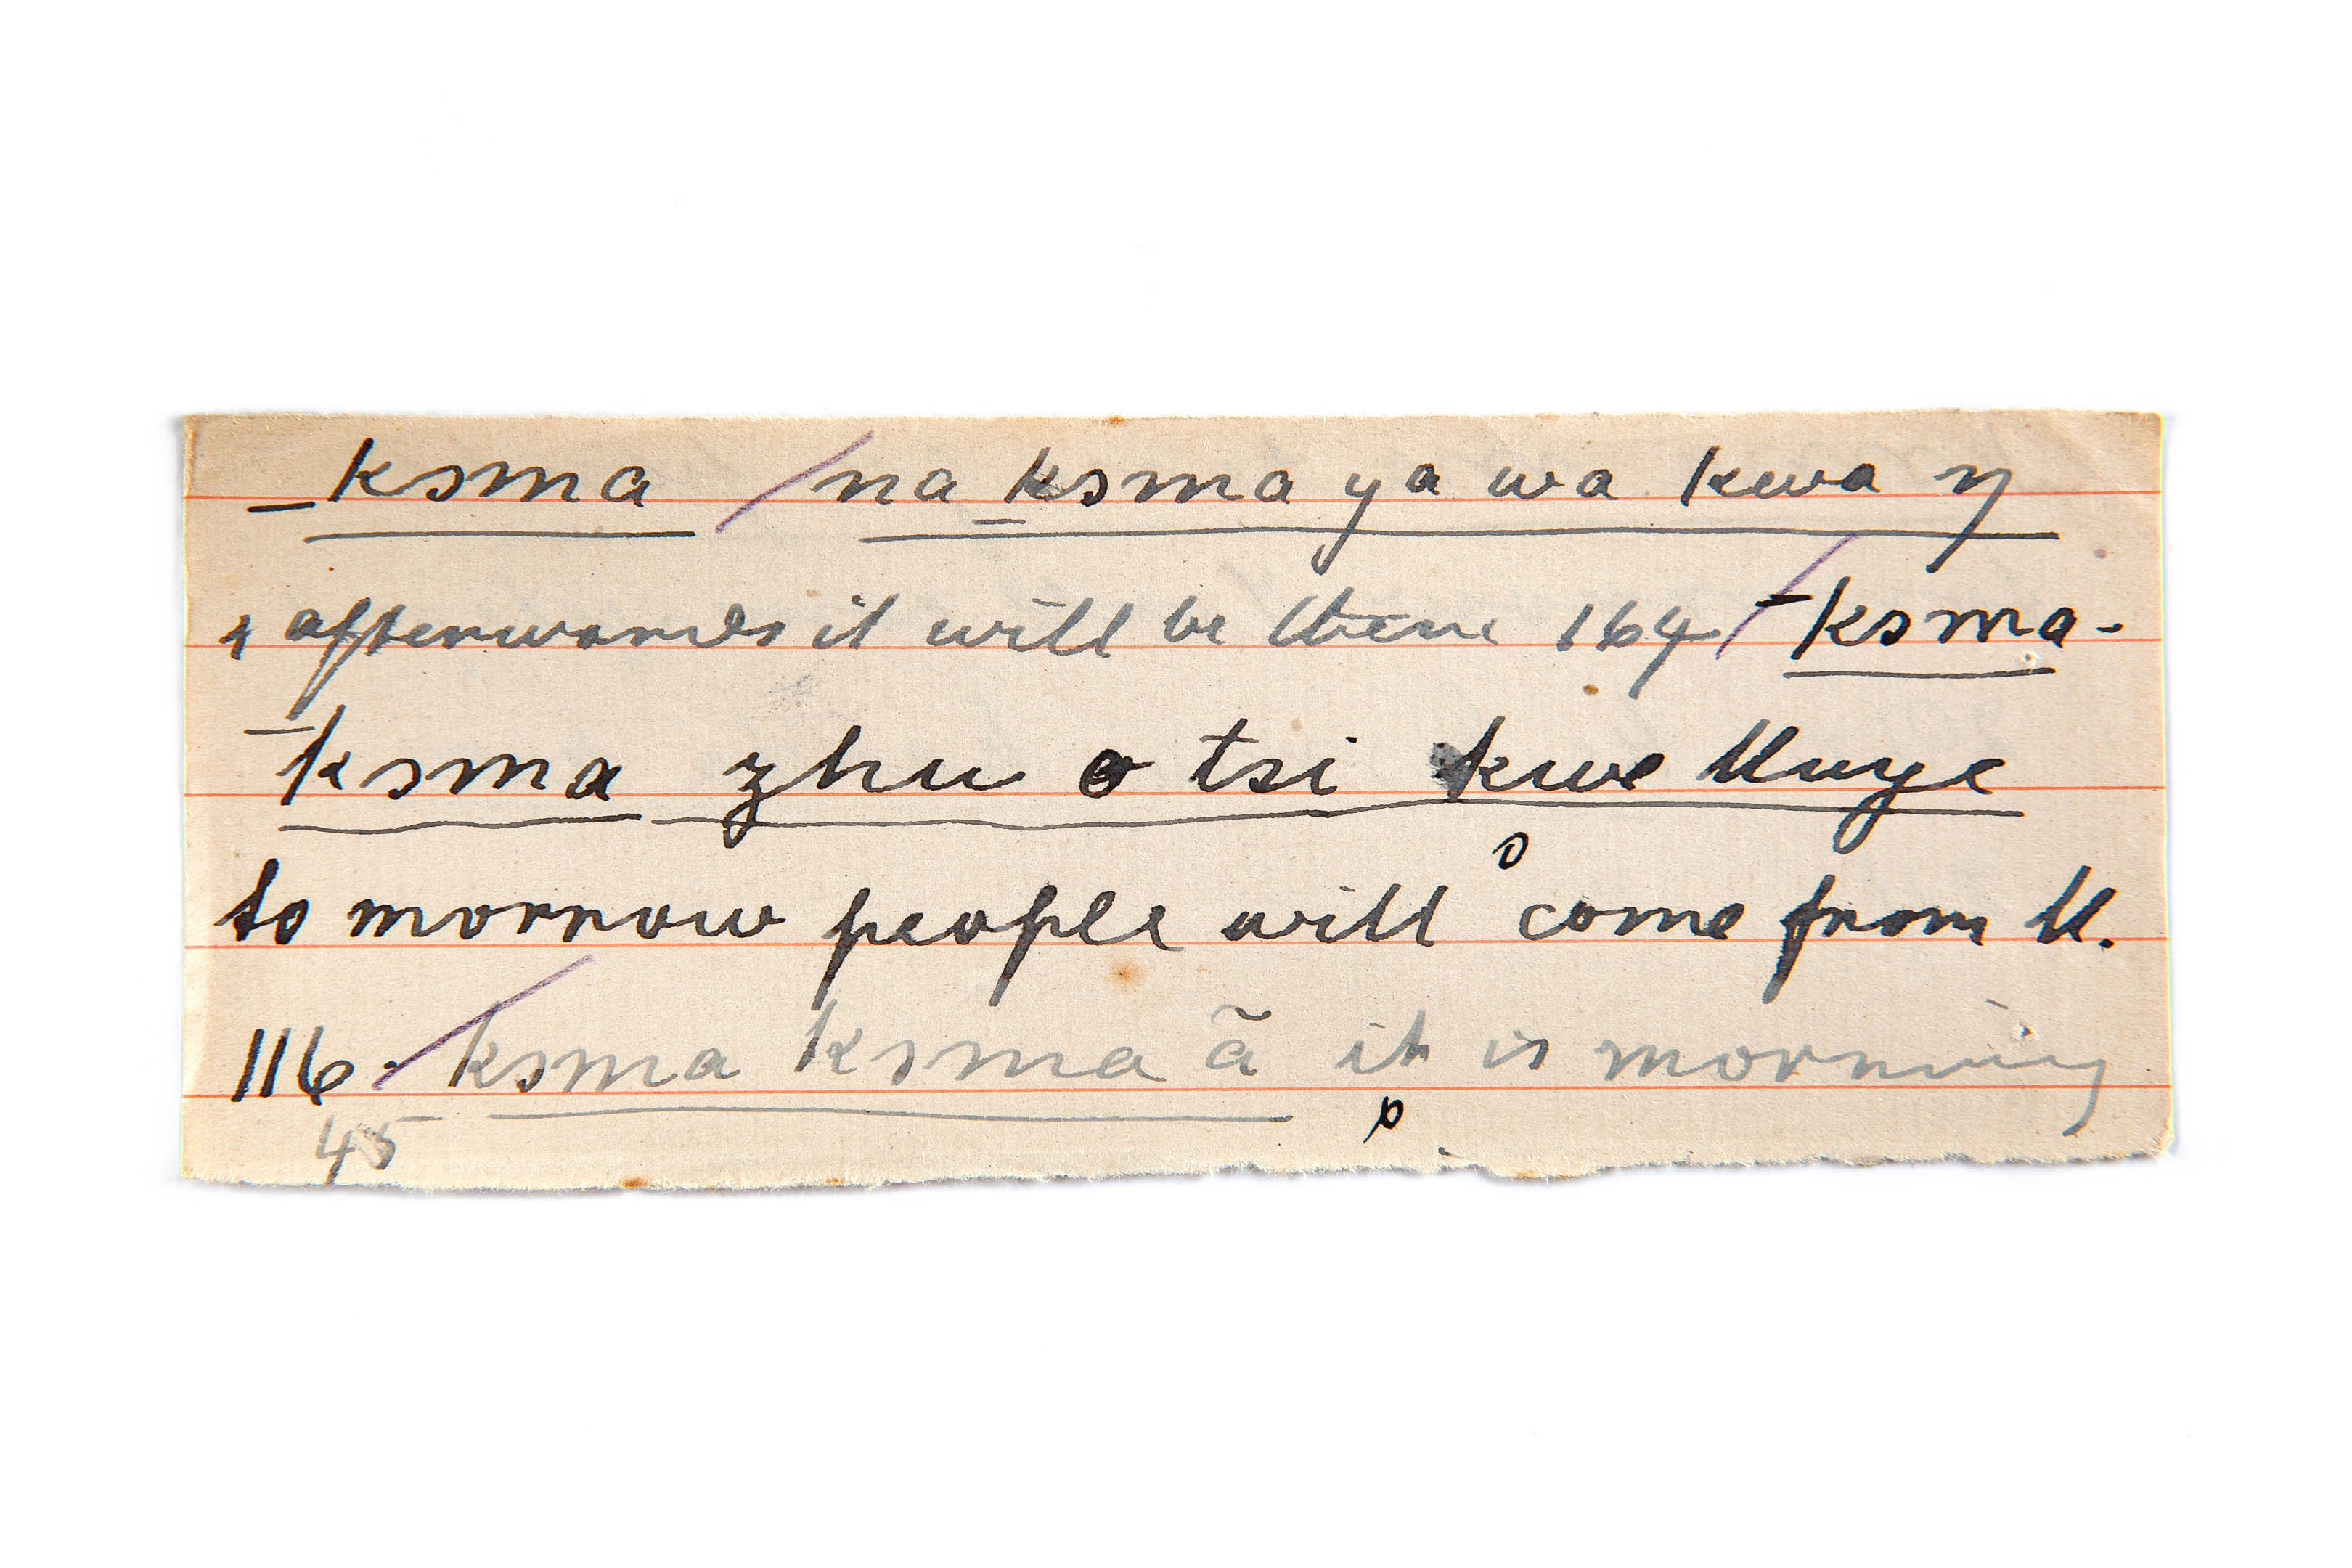 _ksma / na ksma ya wa kwa ŋ
& afterwards it will be there 164 / ‾ksma-
‾ksma zhu o tsi kwe
to morrow people will come from U.
116. / ksma ksma ã it is morning
45